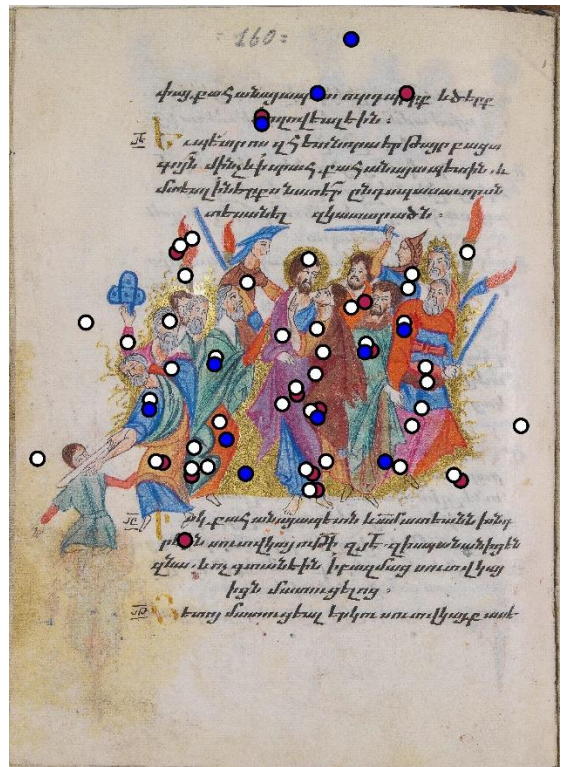 160
փայ. քահանայապ ուր դպիրք և ծերք
ժողովեալ էին ։
Եւ պետրոս զհետ նորա երթայր բացա
գոյն մինչև ի սրահ քահանայապետին. և
մտեալ ի ներքս նստէր ընդ սպասաւորսն
տեսանել զկատարածն ։
Իսկ քահանայապետն և ատեանն խնդ
րէին սուտ վկայութի զյէ. զի սպանանիցեն
զնա. և ոչ գտանէին ի բազմաց սուտ վկայ
իցն մատուցելոց ։
Յետոյ մատուցեալ երկու սուտ վկայք ասե